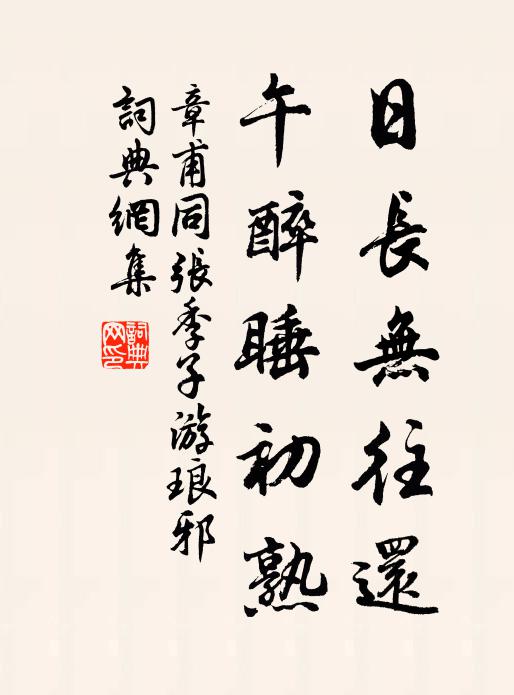 日長無往還
午醉睡初熟
章甫同張季子游琅邪
詞典網集
詞典網印